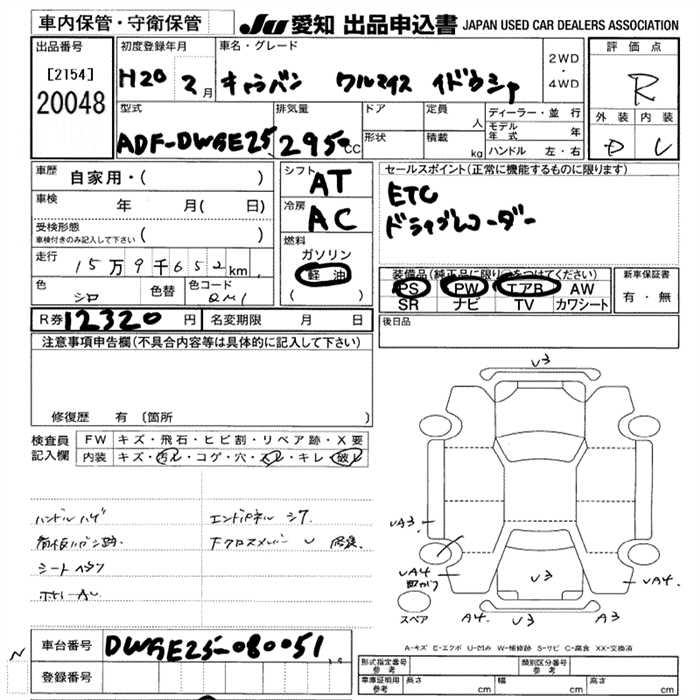 車内保管・守衛保管
JU 愛知 出品申込書 JAPAN USED CAR DEALERS ASSOCIATION
出品番号
[2154]
20048
初度登録年月
H20 2月
車名・グレード
キャラバン クルマイス イドウシャ
2WD
・
4WD
評価点
R
外装 内装
D
型式
ADF-DWGE25
排気量
2950cc
ドア
形状
定員 人
積載 kg
ディーラー・並行
モデル年式 年
ハンドル 左・右
車歴
自家用・( )
車検 年 月( 日)
受検形態
車検付きのみ記入して下さい ( )
走行
15万9千652km
色
シロ
色替
色コード
QM1
シフト
AT
冷房
AC
燃料
ガソリン
軽油
( )
セールスポイント(正常に機能するものに限ります)
ETC
ドライブレコーダー
装備品(純正品に限り○をつけてください)
PS PW エアB AW
SR ナビ TV カワシート
新車保証書
有・無
R券 12320円
名変期限 月 日
後日品
注意事項申告欄(不具合内容等は具体的に記入して下さい)
修復歴 有 〔箇所
検査員
記入欄
FW キズ・飛石・ヒビ割・リペア跡・X要
内装 キズ・汚れ・コゲ・穴・スレ・キレ・破れ
ハンドルハゲ
シート
エンドパネル
下クロスメンバー
U3
UA3
UA4
U3
UA4
A4
U3
A3
スペア
A-キズ E-エクボ U-凹み W-補修跡 S-サビ C-腐食 XX-交換済
車台番号
DWGE25-080051
登録番号
形式指定番号
参考
類別区分番号
参考
車庫証明用
参考
長さ cm
幅 cm
高さ cm